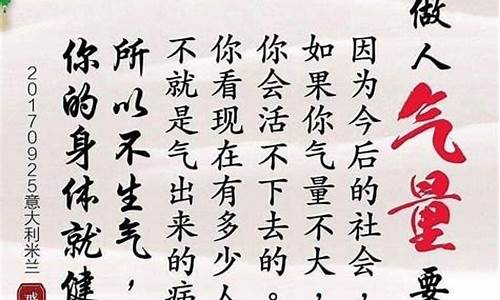 做人气量要
因为今后的社会，
如果你气量不大，
你会活不下去的。
你看现在有多少人
不就是气出来的病
所以不生气，
你的身体就健
20170925意大利米兰
戒